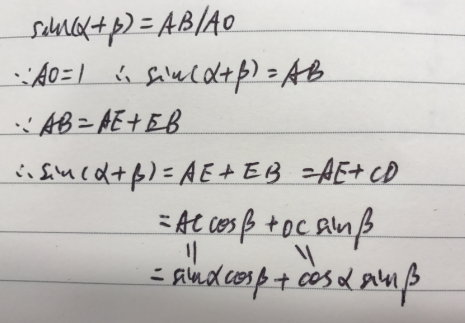 sin(α+β)=AB/AO
∵AO=1 ∴ sin(α+β)=AB
∵ AB=AE+EB
∴sin(α+β)=AE+EB =AE+CD
=ACcosβ+OCsinβ
=sinαcosβ+cosαsinβ